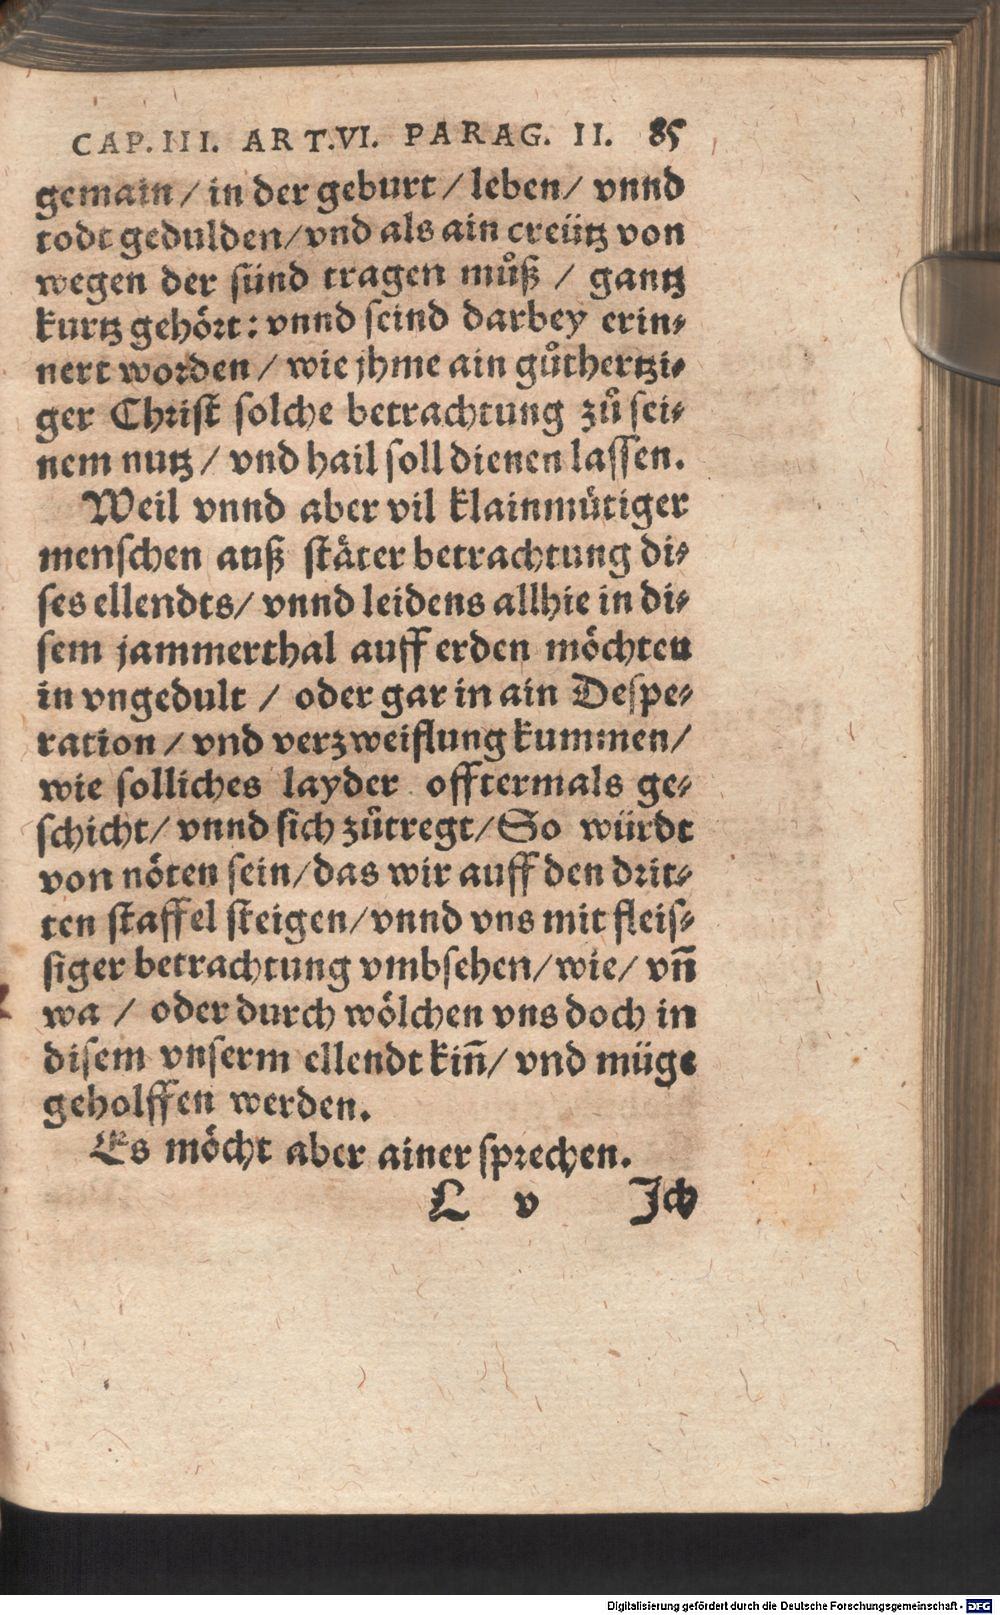 CAP. III. ART. VI. PARAG. II. 85
gemain / in der geburt / leben / vnnd
todt gedulden / vnd als ain creütz von
wegen der sünd tragen můß / gantz
kurtz gehört: vnnd seind darbey erin⸗
nert worden / wie jhme ain gůthertzi⸗
ger Christ solche betrachtung zů sei⸗
nem nutz / vnd hail soll dienen lassen.
Weil vnnd aber vil klainmütiger
menschen auß stäter betrachtung di⸗
ses ellendts / vnnd leidens allhie in di⸗
sem jammerthal auff erden möchten
in vngedult / oder gar in ain Despe⸗
ration / vnd verzweiflung kummen /
wie solliches layder offtermals ge⸗
schicht / vnnd sich zůtregt / So würdt
von nöten sein / das wir auff den drit⸗
ten staffel steigen / vnnd vns mit fleis⸗
siger betrachtung vmbsehen / wie / vn̄
wa / oder durch wölchen vns doch in
disem vnserm ellendt kin̄ / vnd müge
geholffen werden.
Es möcht aber ainer sprechen.
L v Ich
Digitalisierung gefördert durch die Deutsche Forschungsgemeinschaft - DFG